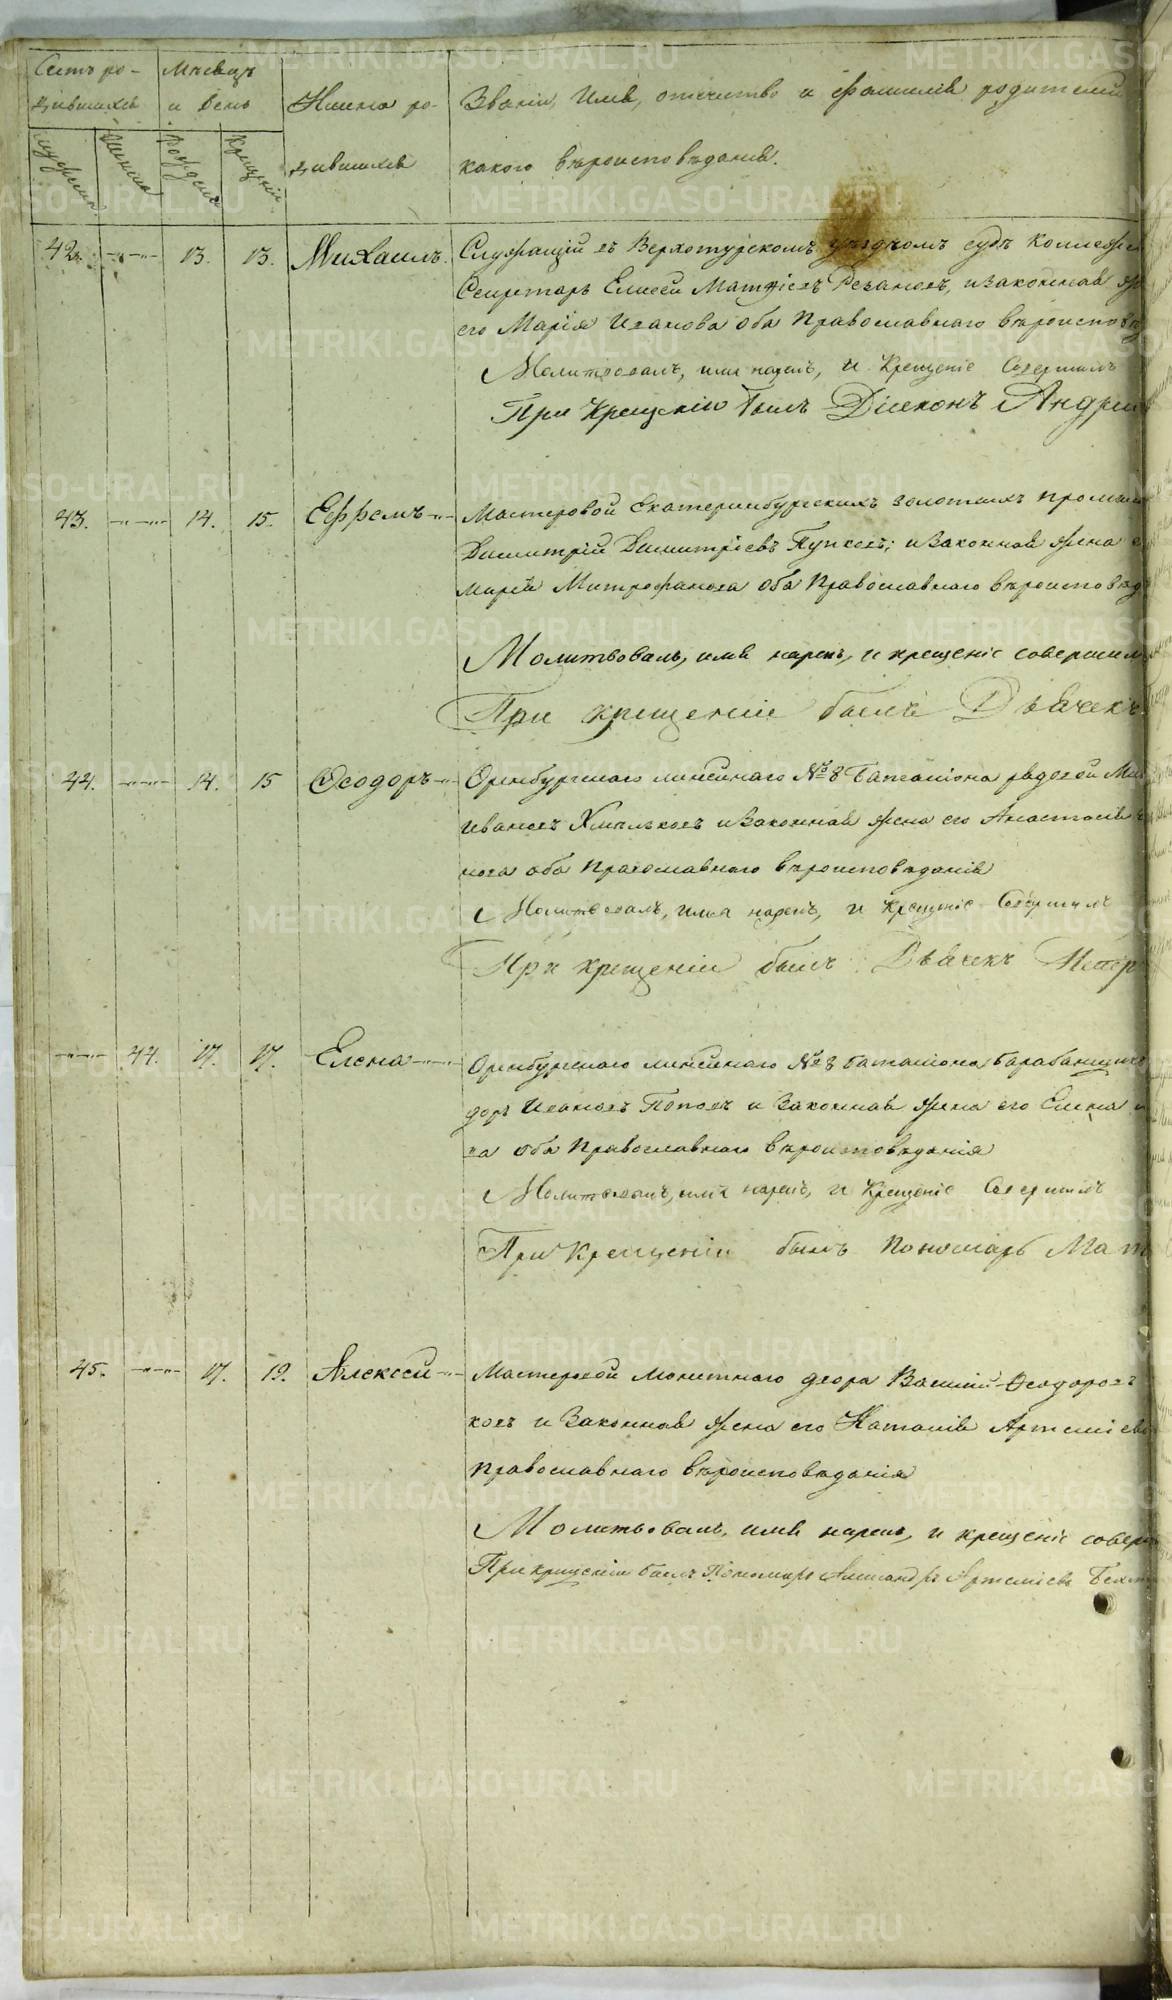 Счетъ ро-
дившихся
Мѣсяцъ
и День
Имена ро-
дившихся
Званіе, Имя, отчество и фамилія родителей
какого вѣроисповѣданія.
мужска
женска
Рожденія
Крещенія
42. 13. 13. Михаилъ. Служащій въ Верхотурскомъ уѣздномъ судѣ Коллежс
Секретарь Елисей Матфіевъ Резановъ, и законная же
его Марія Иванова оба Православнаго вѣроисповѣ
Молитвовалъ, имя нарекъ, и Крещеніе Совершилъ
При Крещеніи былъ Діаконъ Андрей
43. 14. 15. Ефремъ Мастеровой Екатеринбургскихъ золотыхъ промыс
Димитрій Димитріевъ Пупковъ; и законная жена е
Марія Митрофанова оба Православнаго вѣроисповѣд
Молитвовалъ, имя нарекъ, и крещеніе совершил
При крещеніи былъ Дьячекъ
44. 14. 15 Ѳеодоръ Оренбургскаго линейнаго №8 Баталіона рядовой Ми
Ивановъ Хмѣльковъ и законная жена его Анастасія
нова оба Православнаго вѣроисповѣданія
Молитвовалъ, имя нарекъ, и Крещеніе Совершилъ
При крещеніи былъ Дьячекъ Петр
44. 17. 17. Елена Оренбургскаго линейнаго №8 баталіона барабанщикъ
доръ Ивановъ Поповъ и законная жена его Елена
ва оба Православнаго вѣроисповѣданія
Молитвовалъ, имя нарекъ, и Крещеніе Совершилъ
При Крещеніи былъ Пономарь Мат
45. 17. 19. Алексей Мастеровой Монетнаго двора Василій Ѳеодоровъ
ковъ и законная жена его Наталія Артеміева
Православнаго вѣроисповѣданія
Молитвовалъ, имя нарекъ, и крещеніе соверш
При крещеніи былъ Пономарь Александръ Артеміевъ
METRIKI.GASO-URAL.RU